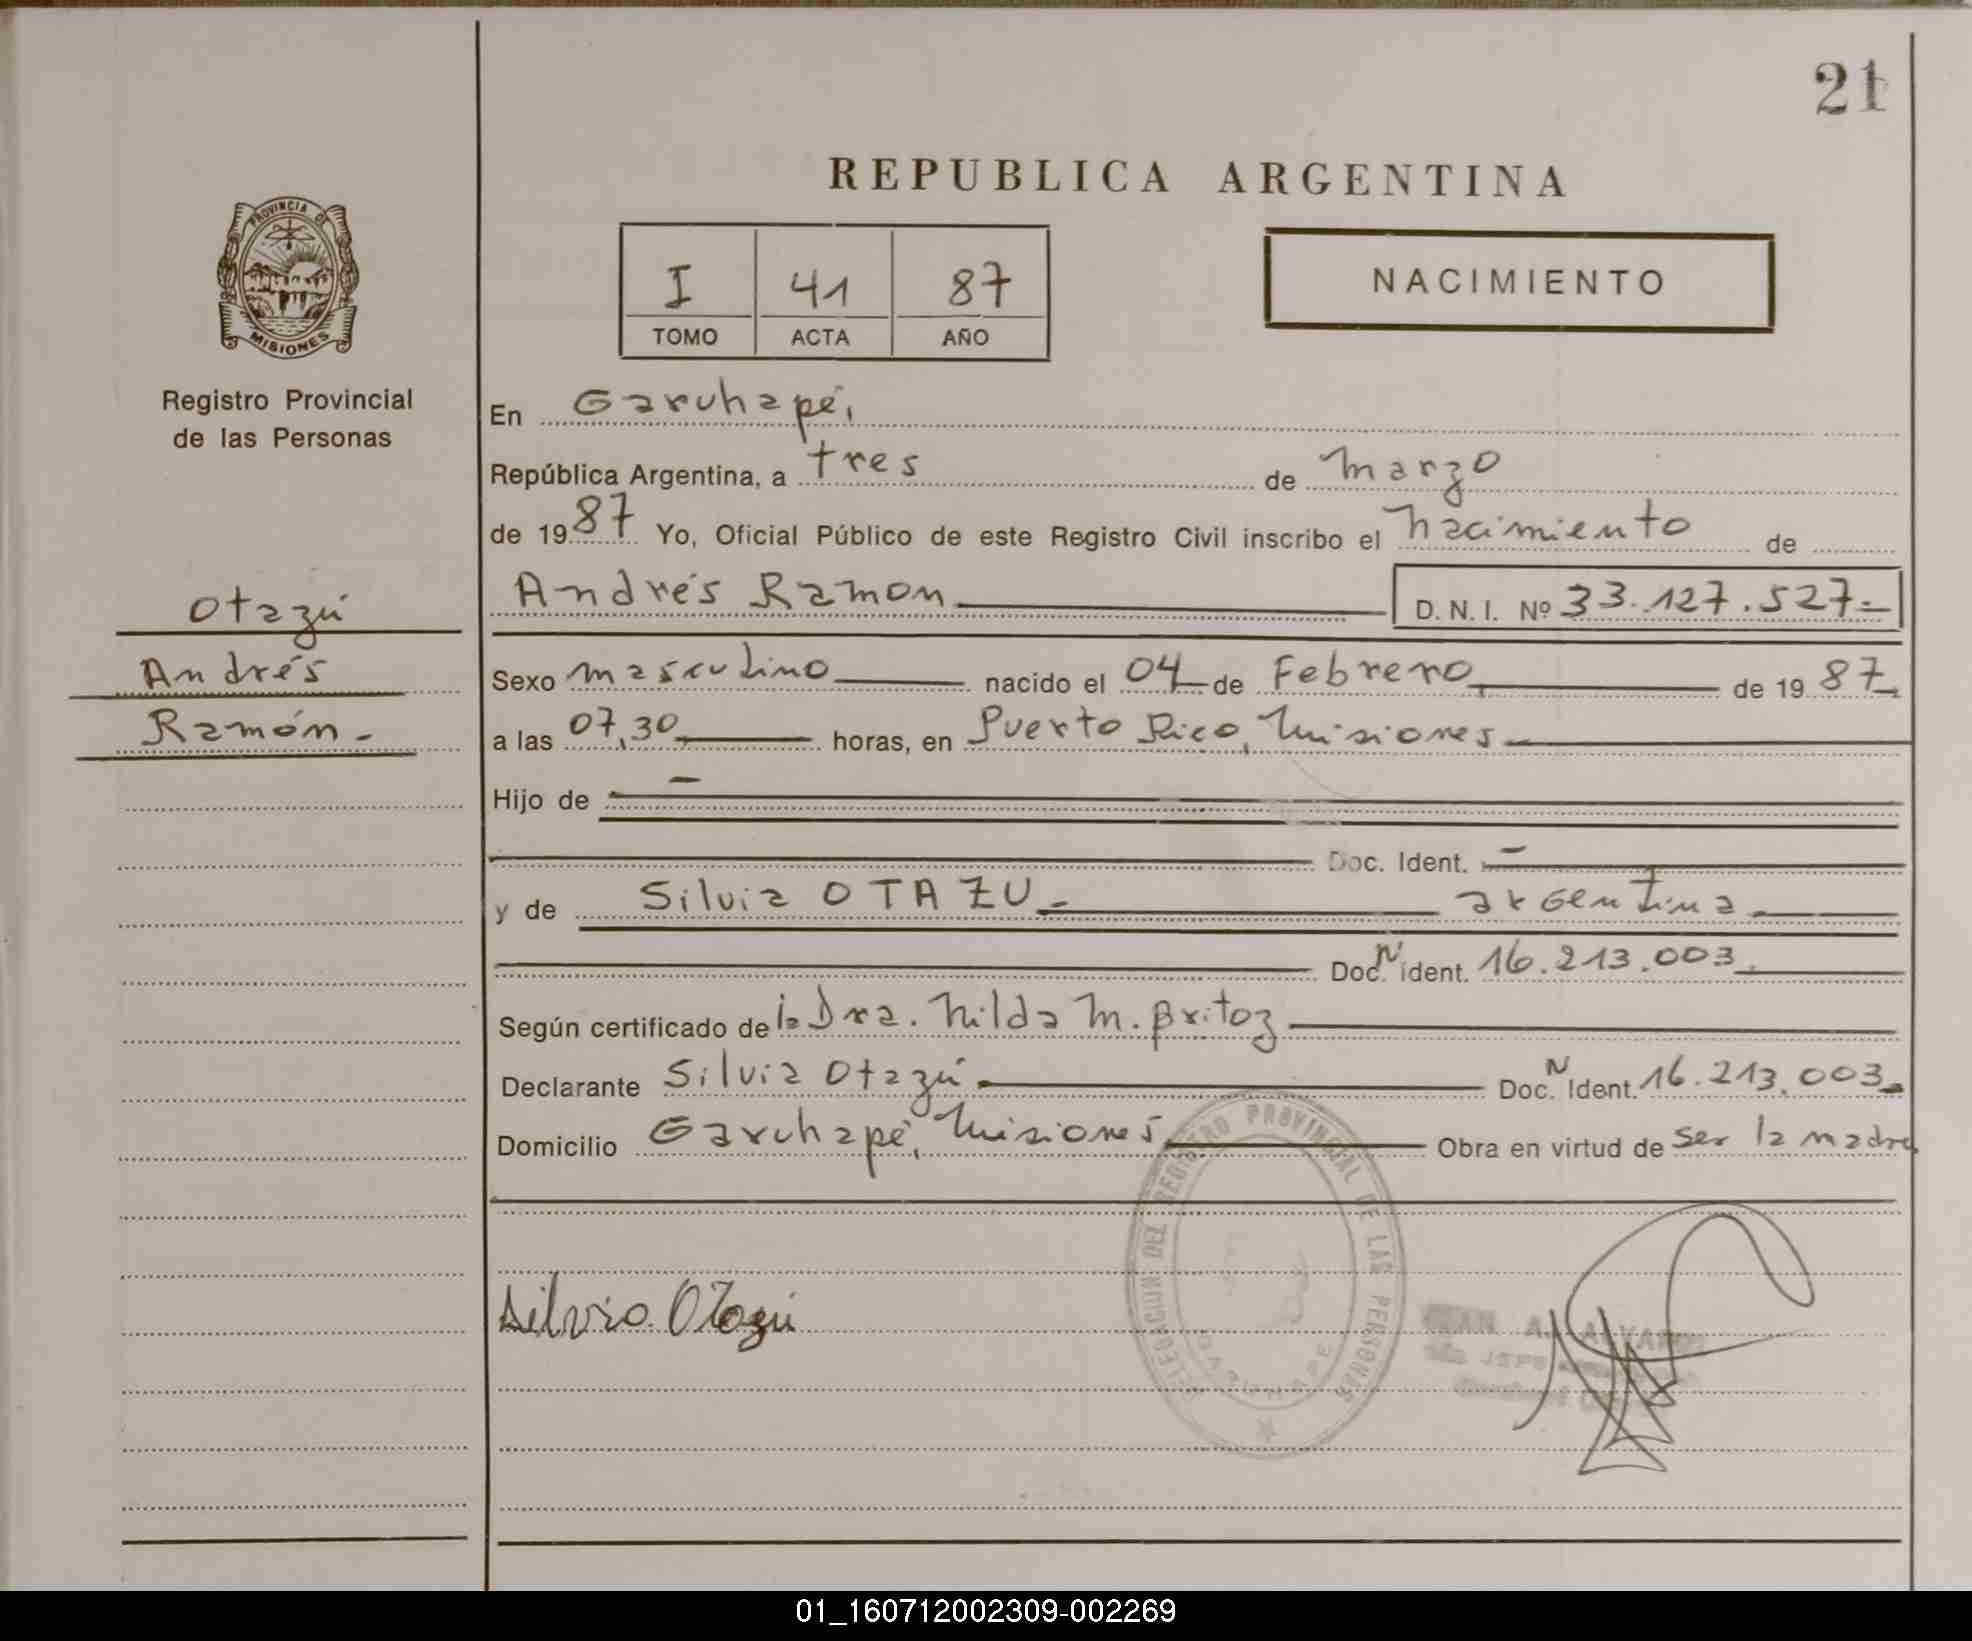 21
REPUBLICA ARGENTINA
PROVINCIA DE
MISIONES
Registro Provincial
de las Personas
I 41 87
TOMO ACTA AÑO
NACIMIENTO
En Garuhapé,
República Argentina, a tres de marzo
de 1987 Yo, Oficial Público de este Registro Civil inscribo el nacimiento de
Andrés Ramon D.N.I. Nº 33.127.527.-
Otazú
Andrés
Ramón.-
Sexo masculino nacido el 04 de Febrero de 1987
a las 07,30 horas, en Puerto Rico, Misiones
Hijo de -
Doc. Ident. -
y de Silvia OTAZU.- argentina
Doc. N° Ident. 16.213.003
Según certificado de la Dra. Nilda M. Britoz
Declarante Silvia Otazú Doc. N Ident. 16.213.003
Domicilio Garuhapé, Misiones Obra en virtud de ser la madre
Silvia Otazú
DELEGACION DEL REGISTRO PROVINCIAL DE LAS PERSONAS
GARUHAPE
01_160712002309-002269